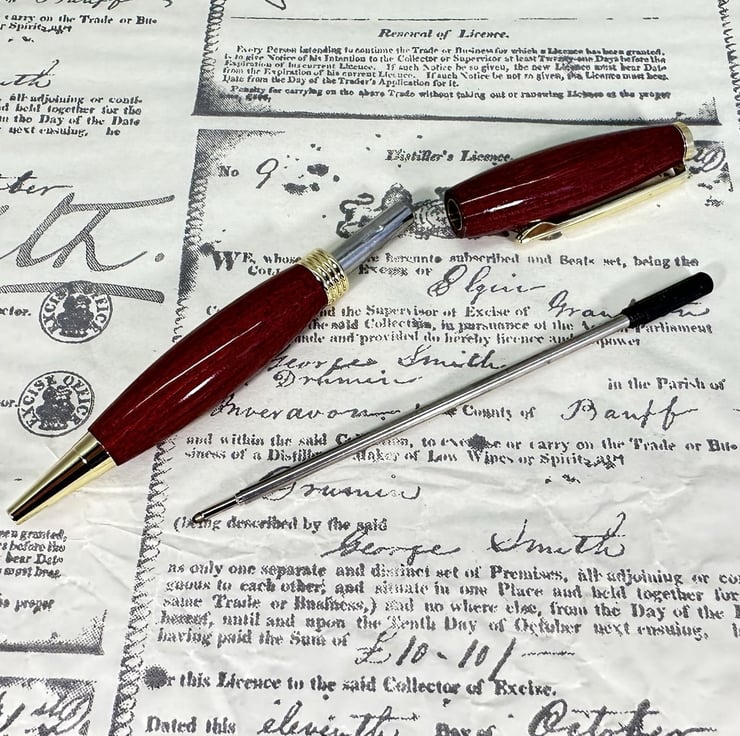 carry on the Trade or Bus-
r Spirits, at
all adjoining or conti-
and held together for the
m the Day of the Date
next ensuing, he
Renewal of Licence.
Every Person intending to continue the Trade or Business for which a Licence has been granted,
is to give Notice of his Intention to the Collector or Supervisor at least Twenty-one Days before the
Expiration of his current Licence. If such Notice be so given, the new Licence must bear Date
from the Expiration of his current Licence. If such Notice be not so given, the Licence must bear
Date from the Day of the Trader's Application for it.
Penalty for carrying on the above Trade without taking out or renewing Licence at the proper
Distiller's Licence.
No 9
WE, whose hereunto subscribed and Seals set, being the
Excise of Elgin
and the Supervisor of Excise of
the said Collection, in pursuance of the Parliament
made and provided do hereby licence and empower
George Smith
Drumin in the Parish of
Inveravon County of Banff
and within the said to exercise or carry on the Trade or Bus-
siness of a Distiller Maker of Low Wines or Spirits, at
Drumin
(being described by the said
George Smith
as only one separate and distinct set of Premises, all adjoining or con
guous to each other, and situate in one Place and held together for
same Trade or Business,) and no where else, from the Day of the
hereof, until and upon the Tenth Day of October next ensuing,
having paid the Sum of £10-10/
for this Licence to the said Collector of Excise.
Dated this eleventh Day of October
EXCISE OFFICE
EXCISE OFFICE
been granted,
before the
bear Date
must bear
proper